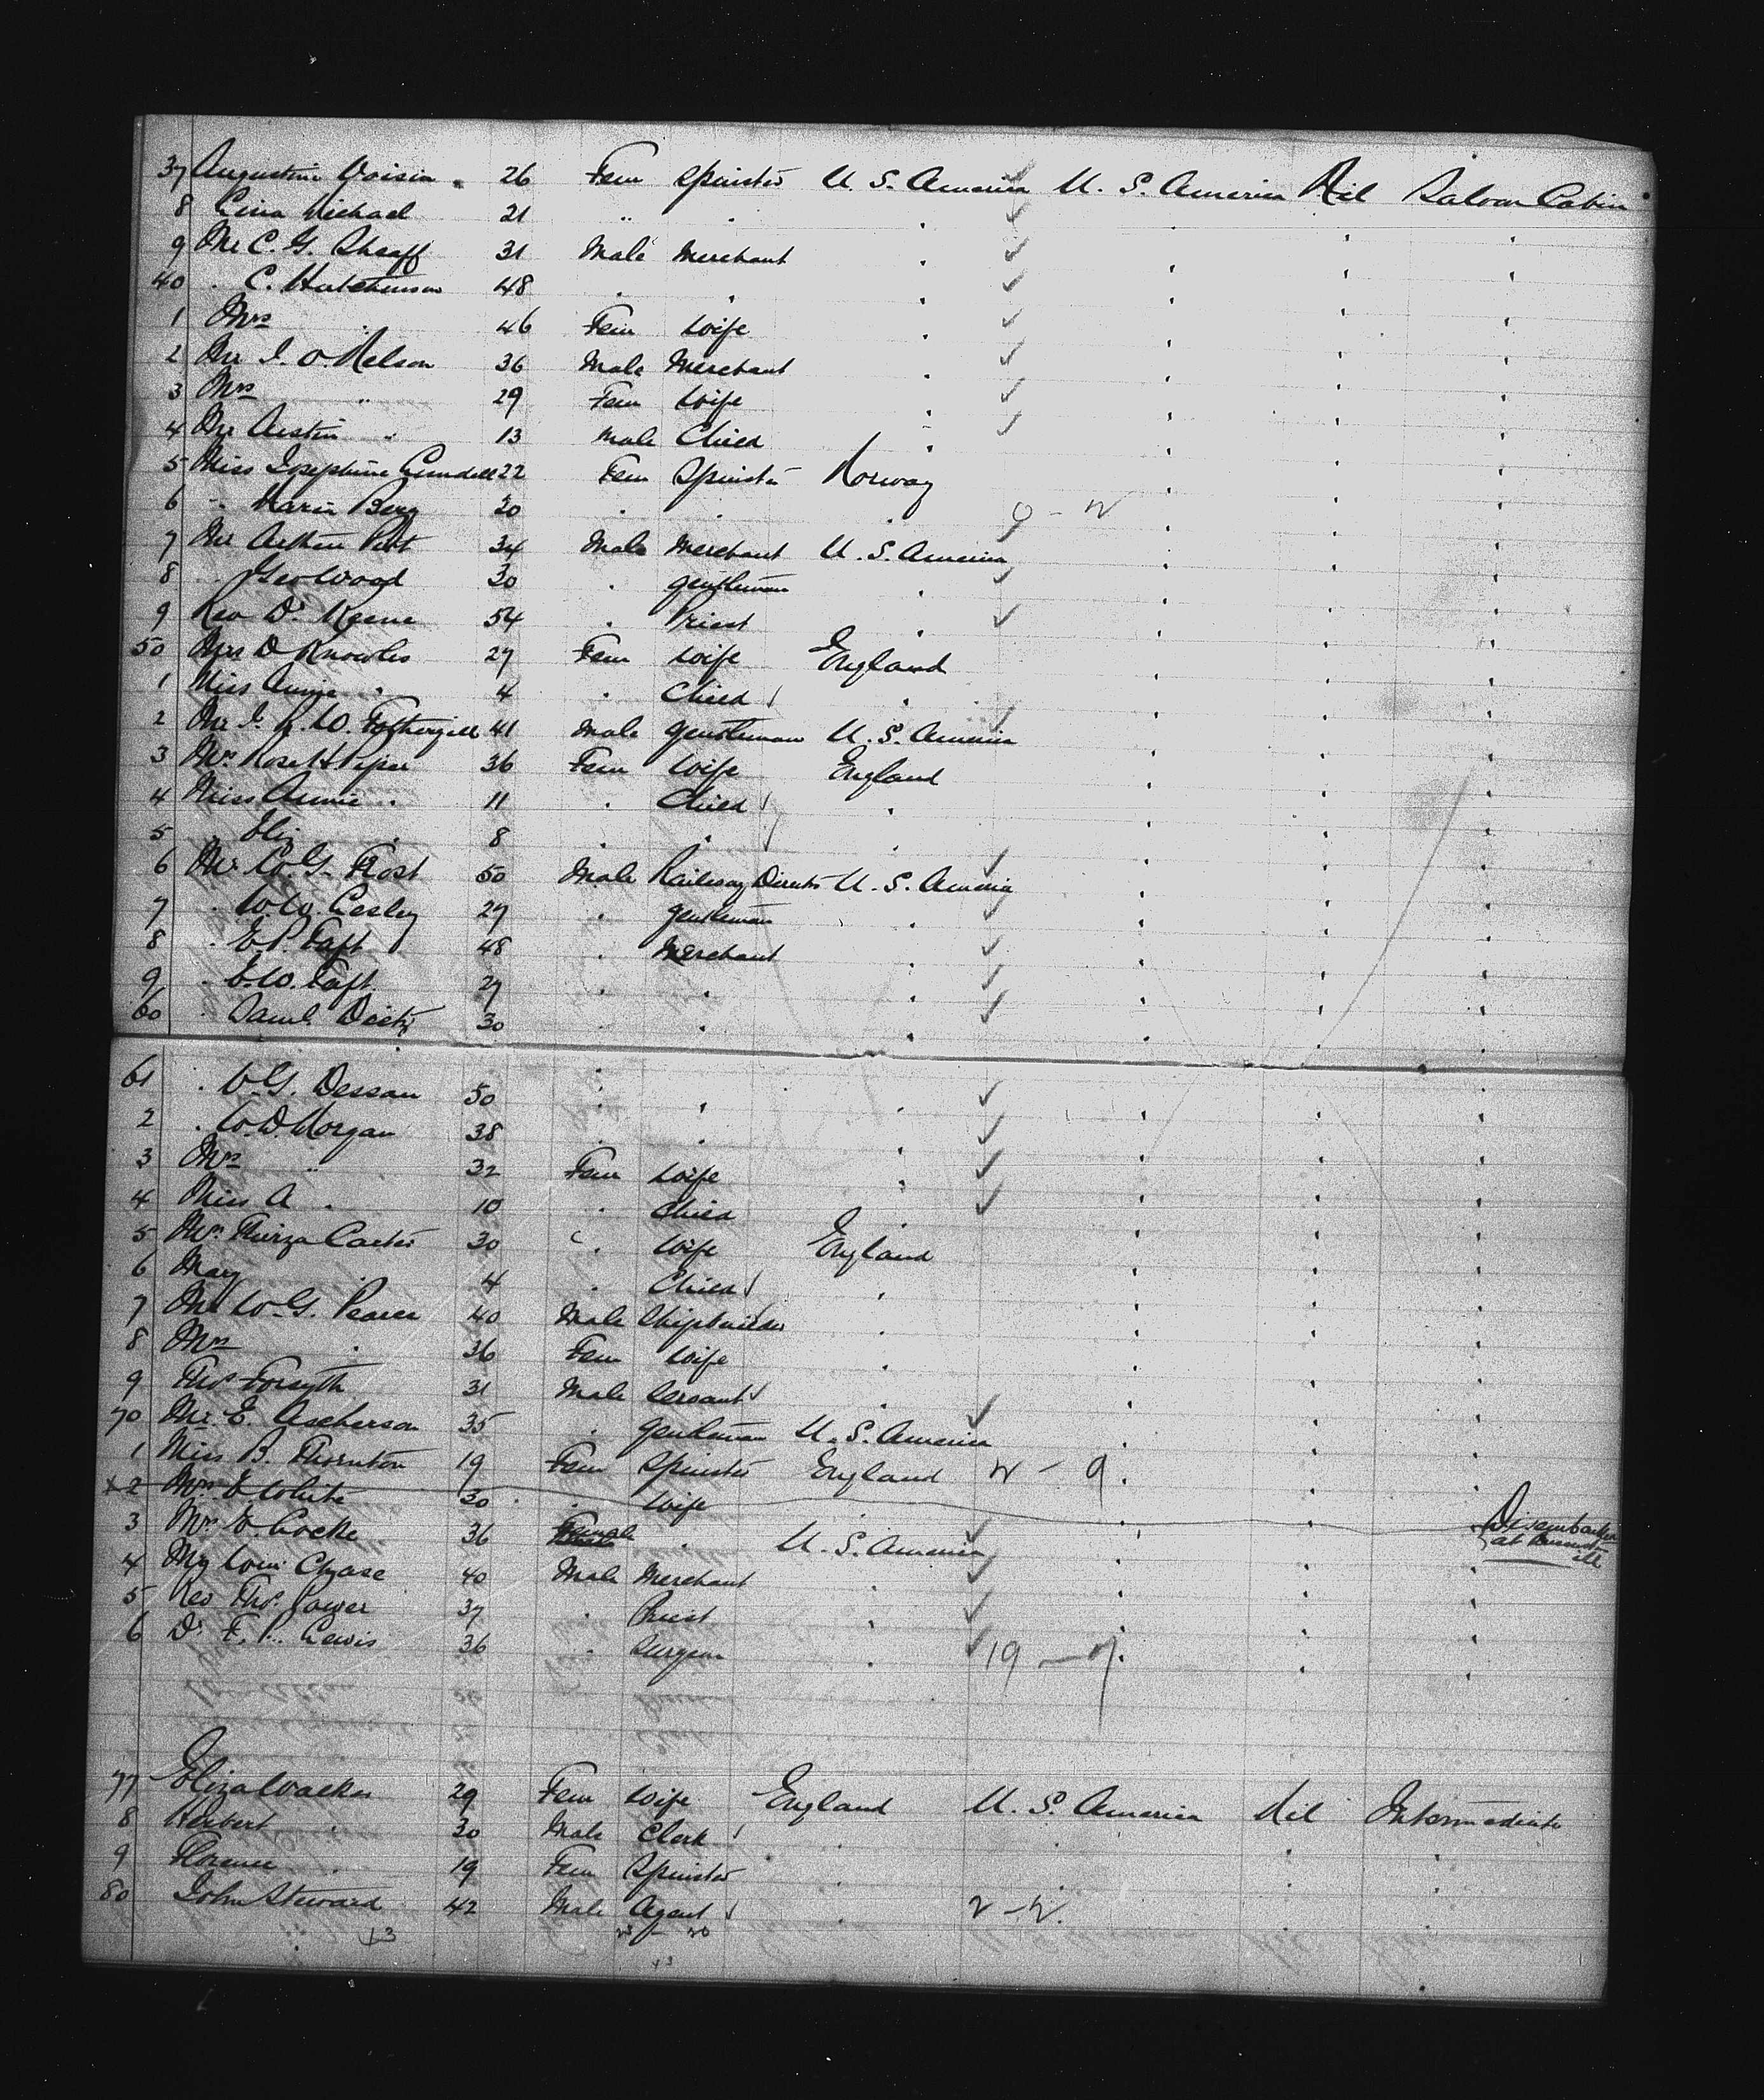 37 Augustine Voisin 26 Fem Spinster U S. America U. S. America Nil Saloon Cabin
8 Lina Michael 21 " "
9 Mr C. G. Sheaff 31 Male Merchant
40 " C. Hutchinson 48 " "
1 Mrs " 46 Fem Wife
2 Mr J. O. Nelson 36 Male Merchant
3 Mrs " 29 Fem Wife
4 Mr Austin " 13 Male Child
5 Miss Josephine 22 Fem Spinster Norway
6 " Maria Berg 20 " " "
7 Mr Arthur 34 Male Merchant U. S. America
8 " Geo Wood 30 " Gentleman
9 Rev Dr. Keene 54 " Priest
50 Mrs D Knowles 27 Fem Wife England
1 Miss Annie " 4 " Child
2 Mr J. R. W. Fothergill 41 Male Gentleman U. S. America
3 Mrs Rose H Piper 36 Fem Wife England
4 Miss Annie " 11 " Child
5 " Eliz " 8 " "
6 Mr W. G. Frost 50 Male Railway Director U. S. America
7 " W. W. Lesley 27 " Gentleman
8 " E. P. Taft 48 " Merchant
9 " E. W. Taft 27 " "
60 " Saml. 30 " "
61 " G. Dessau 50 " "
2 " W. D. Morgan 38 " "
3 Mrs " 32 Fem Wife
4 Miss A " 10 " Child
5 Mrs Thirza Carter 30 " Wife England
6 Mary " 4 " Child
7 Mr W. G. Pearce 40 Male Shipbuilder
8 Mrs " 36 Fem Wife
9 Thos Forsyth 31 Male Servant
70 Mr. E. Ascherson 35 " Gentleman U. S. America
1 Miss B. Thornton 19 Fem Spinster England
x2 Mrs E White 30 " Wife Disembarked at
3 Mrs E. Locke 36 Female " U. S. America
4 Mr Wm Chase 40 Male Merchant
5 Rev Thos. Power 37 " Priest
6 Dr F. P. Lewis 36 " Surgeon 19
77 Eliza Walker 29 Fem Wife England U. S. America Nil Intermediate
8 Herbert " 30 Male Clerk
9 Florence " 19 Fem Spinster
80 John Steward 42 Male Agent